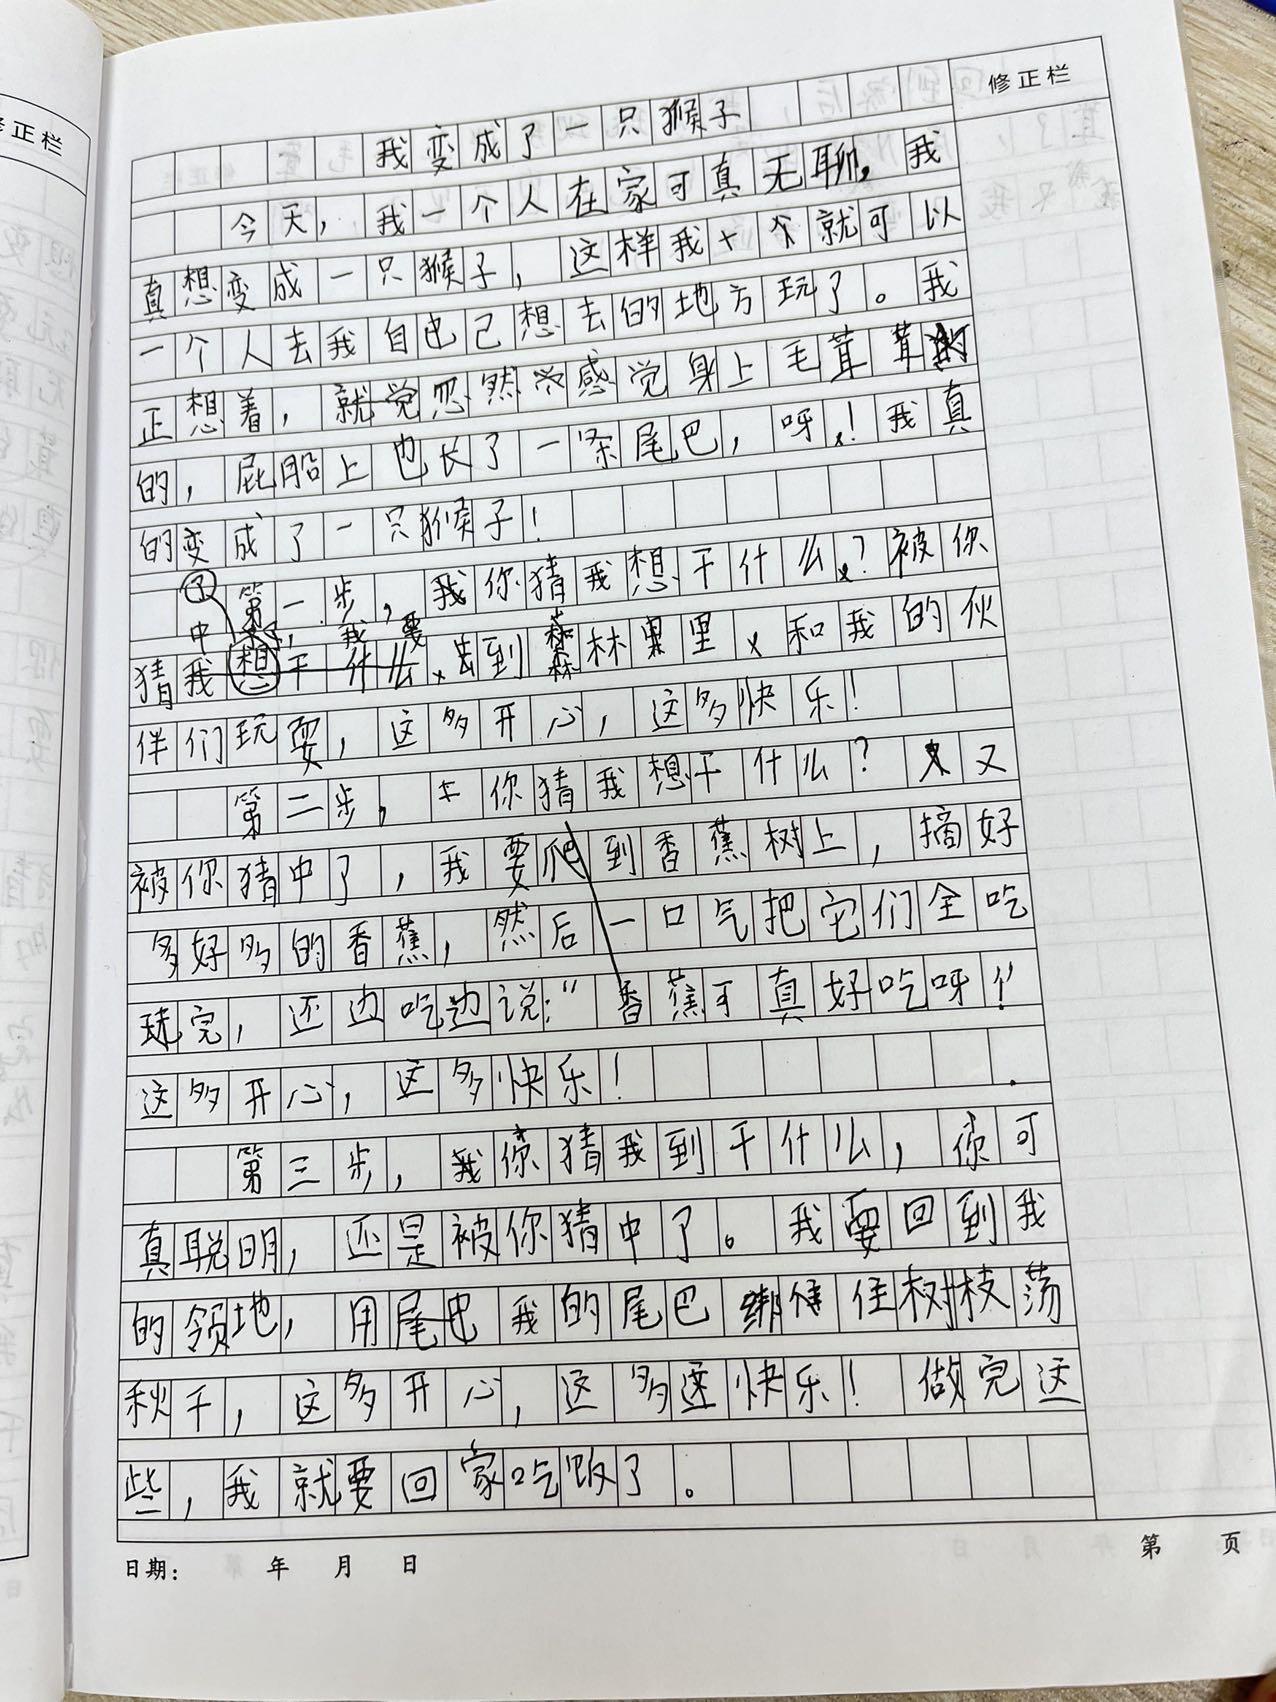 修正栏
修正栏
我变成了一只猴子
今天，我一个人在家可真无聊，我
真想变成一只猴子，这样我就可以
一个人去我自己想去的地方玩了。我
正想着，忽然感觉身上毛茸茸
的，屁股上也长了一条尾巴，呀！我真
的变成了一只猴子！
第一步，你猜我想干什么？被你
中了，我要
猜去到森林里和我的伙
伴们玩耍，这多开心，这多快乐！
第二步，你猜我想干什么？又
被你猜中了，我要爬到香蕉树上，摘好
多好多的香蕉，然后一口气把它们全吃
完，还边吃边说：“香蕉可真好吃呀！”
这多开心，这多快乐！
第三步，你猜我到干什么，你可
真聪明，还是被你猜中了。我要回到我
的领地，用我的尾巴绑住树枝荡
秋千，这多开心，这多快乐！做完这
些，我就要回家吃饭了。
日期： 年 月 日
第 页